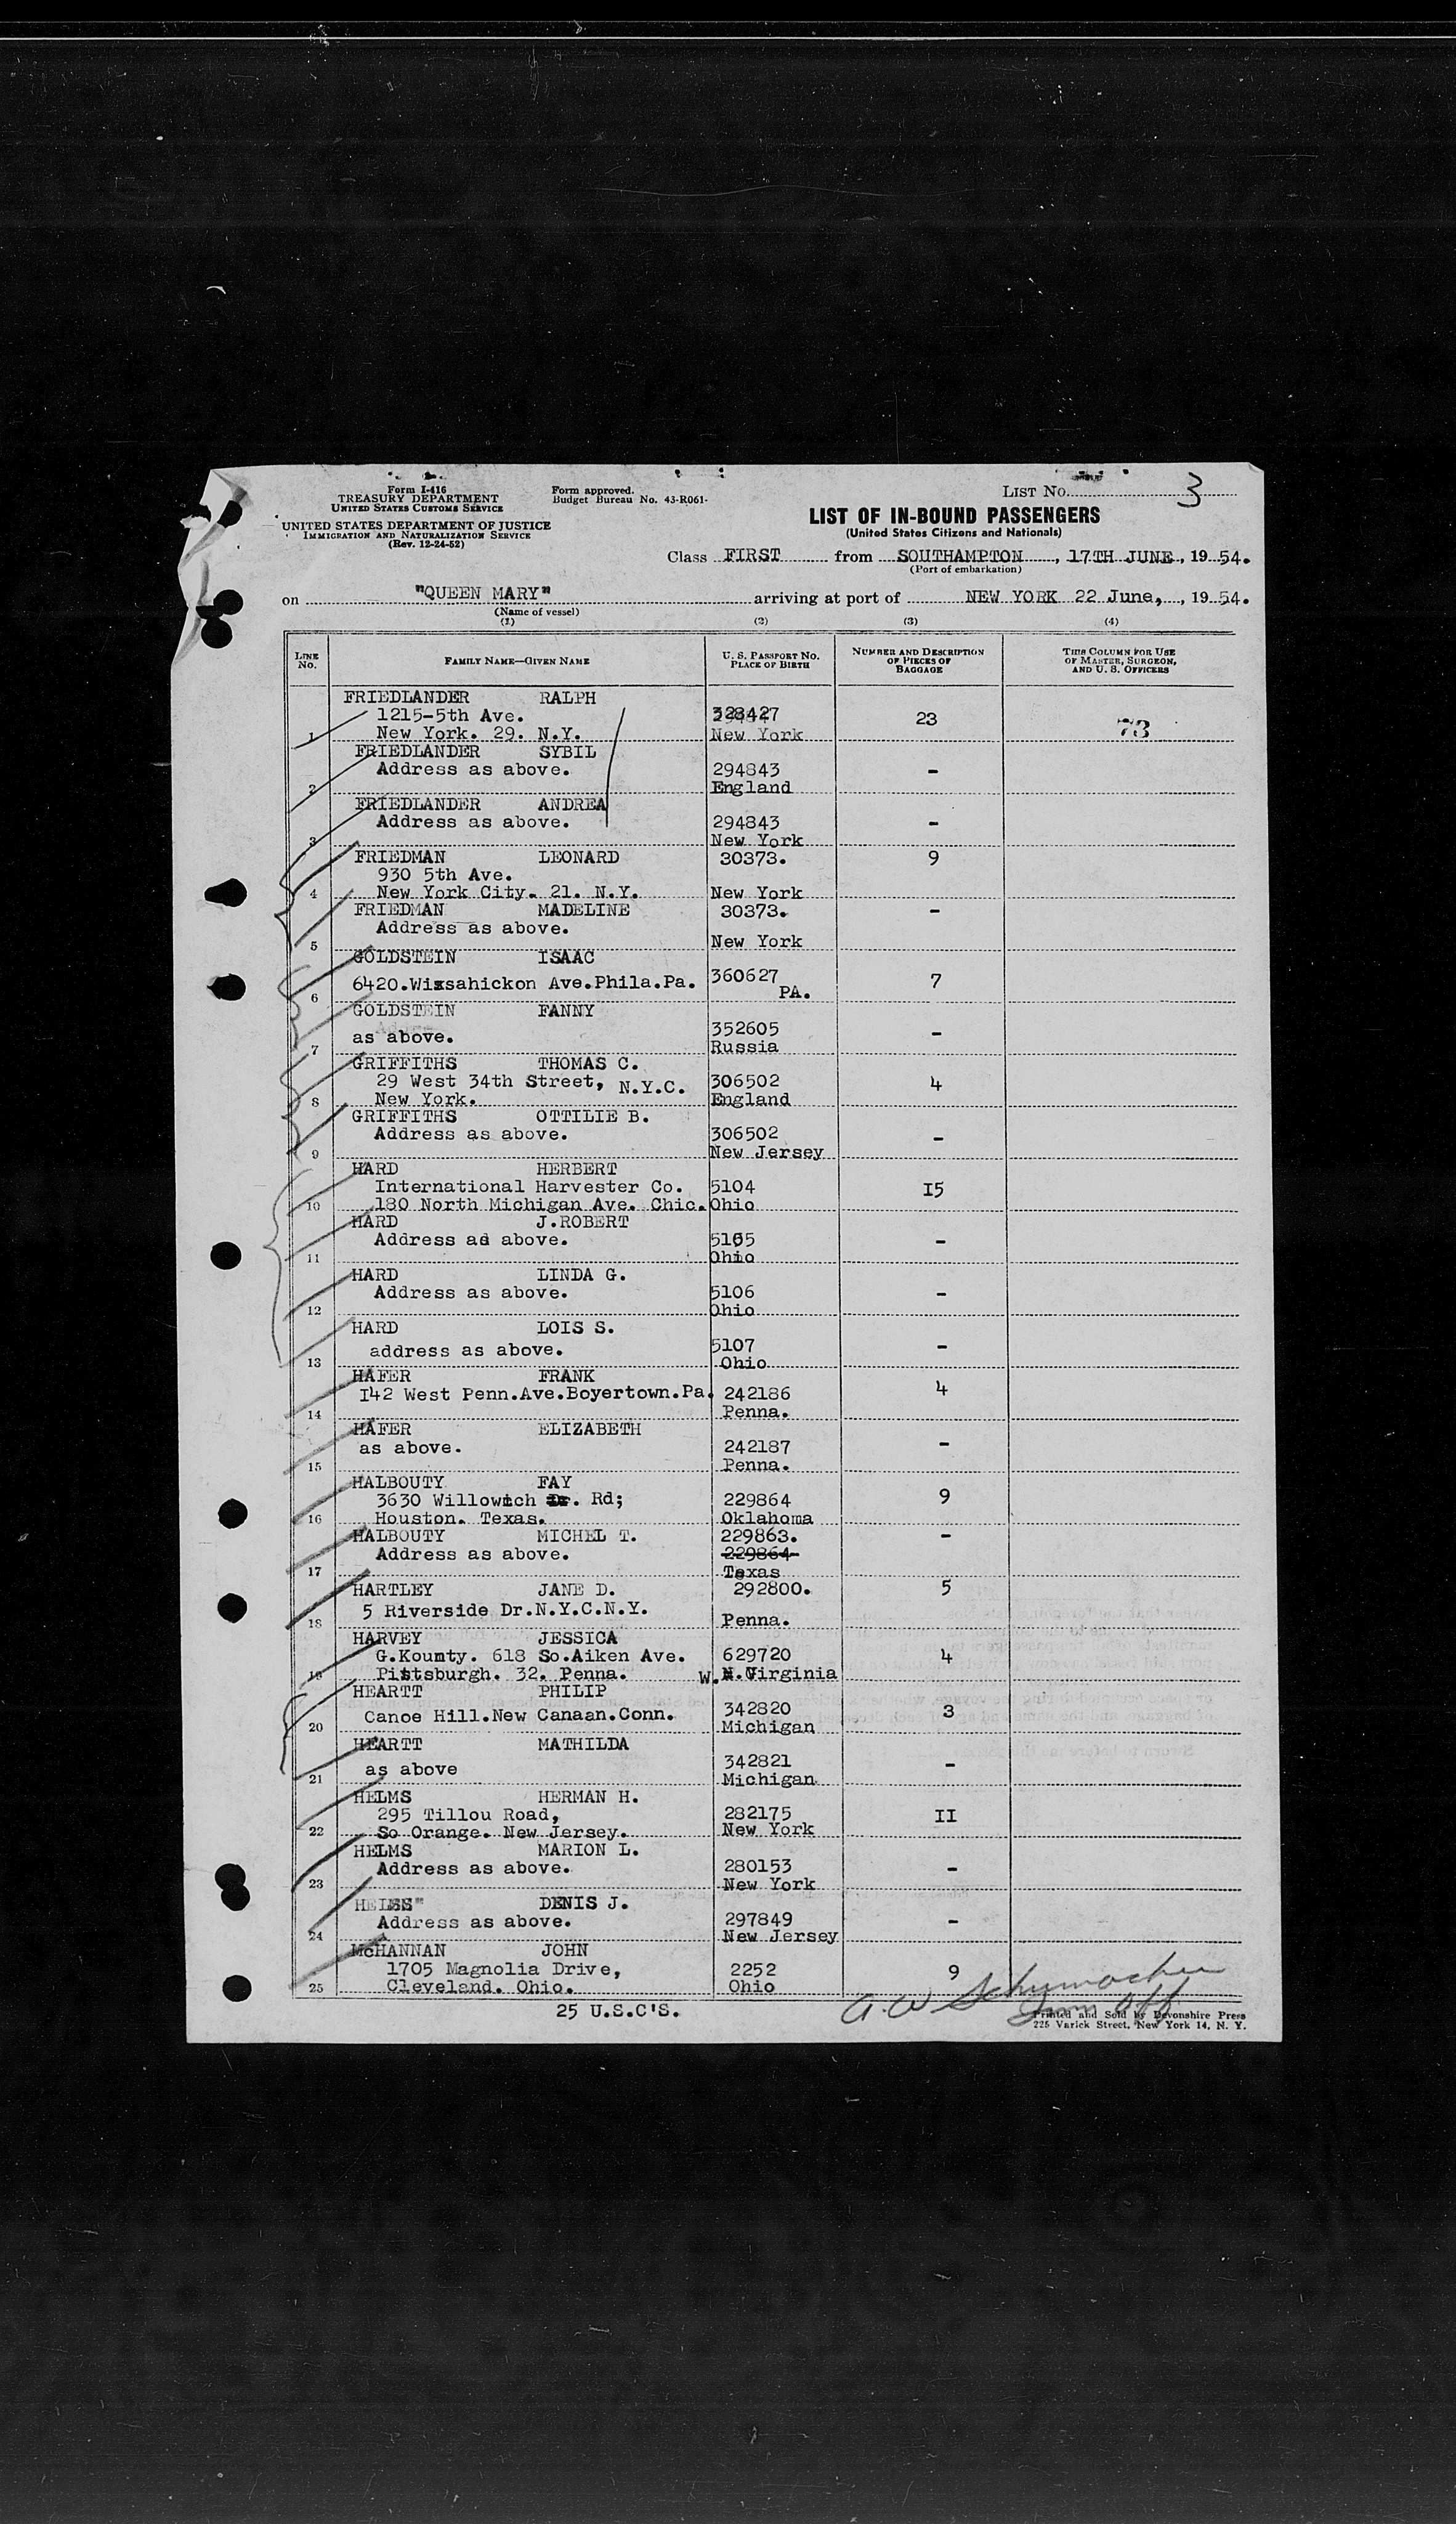 Form I-416
TREASURY DEPARTMENT
UNITED STATES CUSTOMS SERVICE
UNITED STATES DEPARTMENT OF JUSTICE
IMMIGRATION AND NATURALIZATION SERVICE
(Rev. 12-24-52)
Form approved.
Budget Bureau No. 43-R061-
LIST No. 3
LIST OF IN-BOUND PASSENGERS
(United States Citizens and Nationals)
Class FIRST from SOUTHAMPTON, 17TH JUNE, 19 54.
(Port of embarkation)
on "QUEEN MARY" arriving at port of NEW YORK 22 June, , 19 54.
(Name of vessel)
(1) (2) (3) (4)
LINE No. FAMILY NAME—GIVEN NAME U. S. PASSPORT No. PLACE OF BIRTH NUMBER AND DESCRIPTION OF PIECES OF BAGGAGE THIS COLUMN FOR USE OF MASTER, SURGEON, AND U. S. OFFICERS
FRIEDLANDER RALPH
1215-5th Ave. 328427 23 73
1 New York. 29. N.Y. New York
FRIEDLANDER SYBIL
Address as above. 294843 -
2 England
FRIEDLANDER ANDREA
Address as above. 294843 -
3 New York
FRIEDMAN LEONARD 30373. 9
930 5th Ave.
4 New York City. 21. N.Y. New York
FRIEDMAN MADELINE 30373. -
Address as above.
5 New York
GOLDSTEIN ISAAC
6420.Wissahickon Ave.Phila.Pa. 360627 7
6 PA.
GOLDSTEIN FANNY
as above. 352605 -
7 Russia
GRIFFITHS THOMAS C.
29 West 34th Street, N.Y.C. 306502 4
8 New York. England
GRIFFITHS OTTILIE B.
Address as above. 306502 -
9 New Jersey
HARD HERBERT
International Harvester Co. 5104 I5
10 180 North Michigan Ave. Chic. Ohio
HARD J.ROBERT
Address as above. 5105 -
11 Ohio
HARD LINDA G.
Address as above. 5106 -
12 Ohio
HARD LOIS S.
address as above. 5107 -
13 Ohio
HAFER FRANK
I42 West Penn.Ave.Boyertown.Pa. 242186 4
14 Penna.
HAFER ELIZABETH
as above. 242187 -
15 Penna.
HALBOUTY FAY
3630 Willowich Dr. Rd; 229864 9
16 Houston. Texas. Oklahoma
HALBOUTY MICHEL T. 229863. -
Address as above. 229864
17 Texas
HARTLEY JANE D. 292800. 5
5 Riverside Dr.N.Y.C.N.Y.
18 Penna.
HARVEY JESSICA
G.Kounty. 618 So.Aiken Ave. 629720 4
19 Pittsburgh. 32. Penna. W. Virginia
HEARTT PHILIP
Canoe Hill.New Canaan.Conn. 342820 3
20 Michigan
HEARTT MATHILDA
as above 342821 -
21 Michigan
HELMS HERMAN H.
295 Tillou Road, 282175 II
22 So Orange. New Jersey. New York
HELMS MARION L.
Address as above. 280153 -
23 New York
DENIS J.
Address as above. 297849 -
24 New Jersey
McHANNAN JOHN
1705 Magnolia Drive, 2252 9
25 Cleveland. Ohio. Ohio
25 U.S.C'S.
A W Schumacher
Imm Off
Printed and Sold by Devonshire Press
225 Varick Street, New York 14, N. Y.